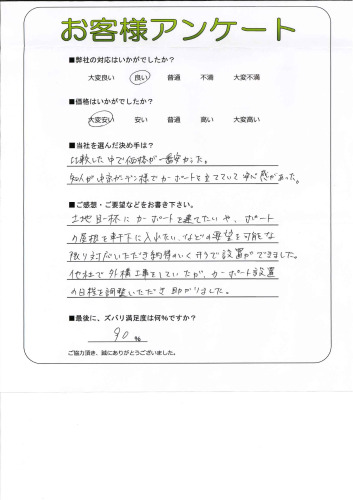 お客様アンケート
■弊社の対応はいかがでしたか?
大変良い 良い 普通 不満 大変不満
■価格はいかがでしたか?
大変安い 安い 普通 高い 大変高い
■当社を選んだ決め手は?
比較した中で価格が一番安かった。
知人が東京ガーデン様でカーポートを立てていて安心感があった。
■ご感想・ご要望などをお書き下さい。
土地目一杯にカーポートを建てたいや、ポート
の屋根を軒下に入れたい、などの要望を可能な
限り対応いただき納得のいく形で設置ができました。
他社で外構工事をしていたが、カーポート設置
の日程を調整いただき助かりました。
■最後に、ズバリ満足度は何%ですか?
90 %
ご協力頂き、誠にありがとうございました。